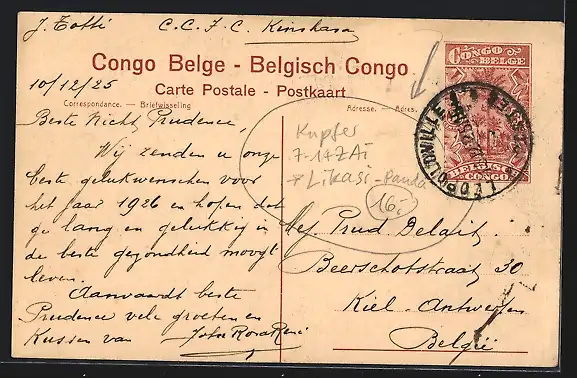 J. Totti C.C.F.C Kinshasa
Congo Belge - Belgisch Congo
Carte Postale - Postkaart
10/12/25
Correspondance. — Briefwisseling
Adresse. — Adres.
CONGO BELGE
BELGISCH CONGO
LEOPOLDVILLE
Beste Nicht Prudence,
Wij zenden u onze
beste gelukwenschen voor
het jaar 1926 en hopen dat
ge lang en gelukkig in
de beste gezondheid moogt
leven.
Aanvaardt beste
Prudence vele groeten en
Kussen van John Rosa René
Kupfer
7-1+ZAi
Likasi-Panda
16.-
Mej. Prud Delait.
Beerschotstraat 30
Kiel-Antwerpen
België